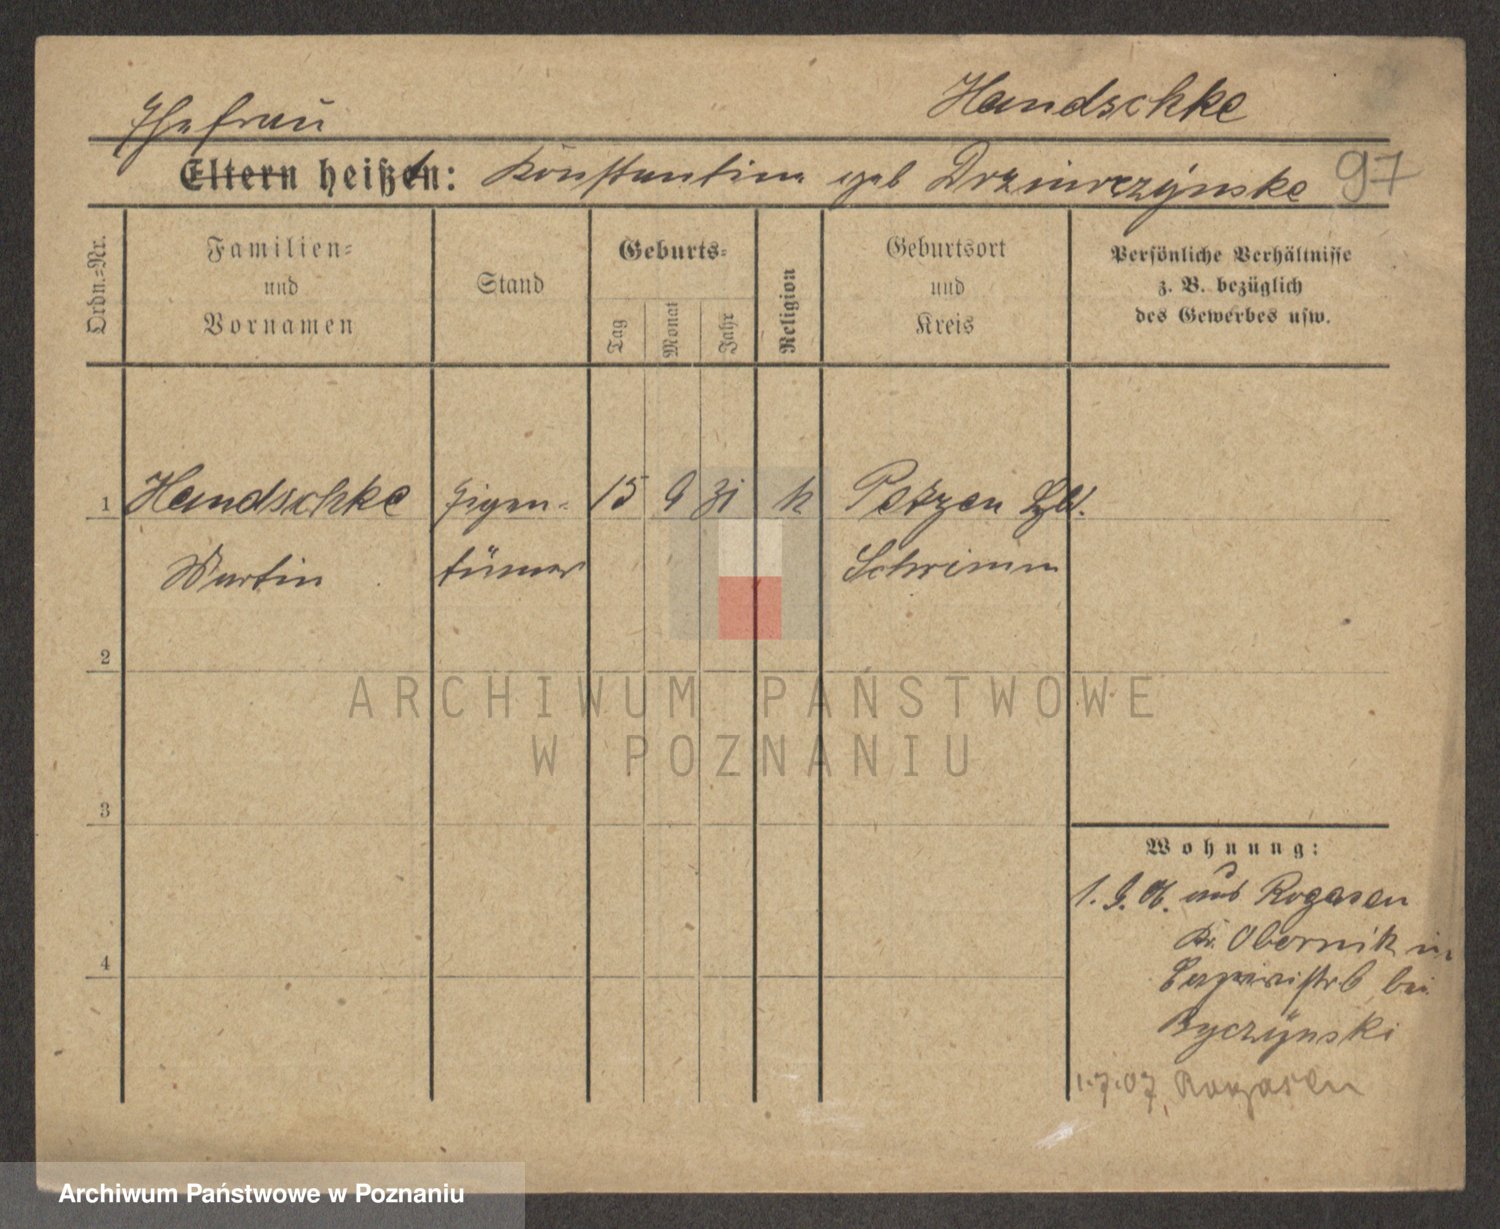 Handschke
Ehefrau
Eltern heißen: Konstantina geb Drzewiczynske 97
Ordn.=Nr.
Familien=
und
Vornamen
Stand
Geburts=
Tag
Monat
Jahr
Religion
Geburtsort
und
Kreis
Persönliche Verhältnisse
z. B. bezüglich
des Gewerbes usw.
1 Handschke Eigen- 15 9 31 k Petzen
Martin tümer Schrimm
2
3
4
ARCHIWUM PAŃSTWOWE
W POZNANIU
Wohnung:
1. 9. 06. aus Rogasen
Kr. Obernik in
bei
Byczÿnski
1.7.07 Rogasen
Archiwum Państwowe w Poznaniu